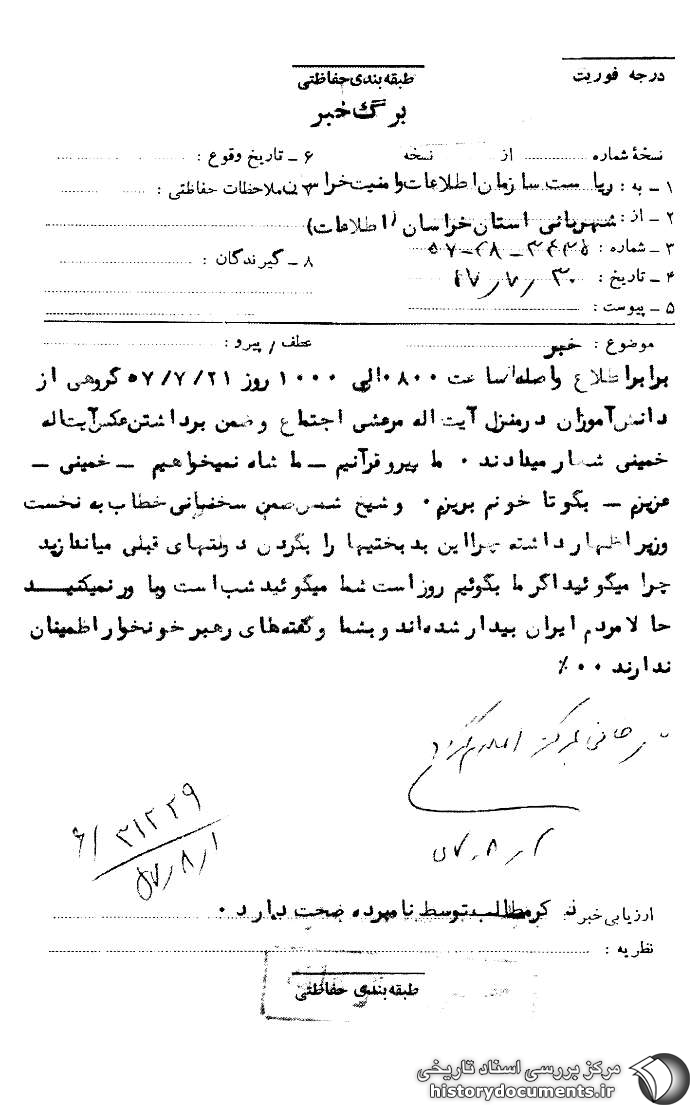 درجه فوریت
طبقه بندی حفاظتی
برگ خبر
نسخهٔ شماره از نسخه
۶ ـ تاریخ وقوع :
۱ ـ به : ریاست سازمان اطلاعات وامنیت خراسان
ملاحظات حفاظتی :
۲ ـ از : شهربانی استان خراسان (اطلاعات)
۳ ـ شماره :
۸ ـ گیرندگان :
۴ ـ تاریخ : ۵۷٫۷٫۳۰
۵ ـ پیوست :
موضوع : خبر
عطف / پیرو :
برابر اطلاع واصله ازساعت ۰۸۰۰ الی ۱۰۰۰ روز ۵۷/۷/۲۱ گروهی از
دانش آموزان درمنزل آیت اله مرعشی اجتماع وضمن برداشتن عکس آیت اله
خمینی شعار میدادند ۰ ما پیرو قرآنیم ـ ما شاه نمیخواهیم ـ خمینی ـ
عزیزم ـ بگو تا خونم بریزم ۰ وشیخ شمس ضمن سخنرانی خطاب به نخست
وزیر اظهار داشته چرا این بدبختیها را بگردن دولتهای قبلی میاندازید
چرا میگوئید اگر ما بگوئیم روز است شما میگوئید شب است وباور نمیکنید
حالا مردم ایران بیدار شده‌اند وبشما وگفته‌های رهبر خونخوار اطمینان
ندارند ۰۰٪
۵۷٫۸٫۲
۳۱۲۲۹ /۶
۵۷٫۸٫۱
ارزیابی خبر ذکر مطالب توسط نامبرده صحت دارد ۰
نظریه :
طبقه بندی حفاظتی
مرکز بررسی اسناد تاریخی
historydocuments.ir